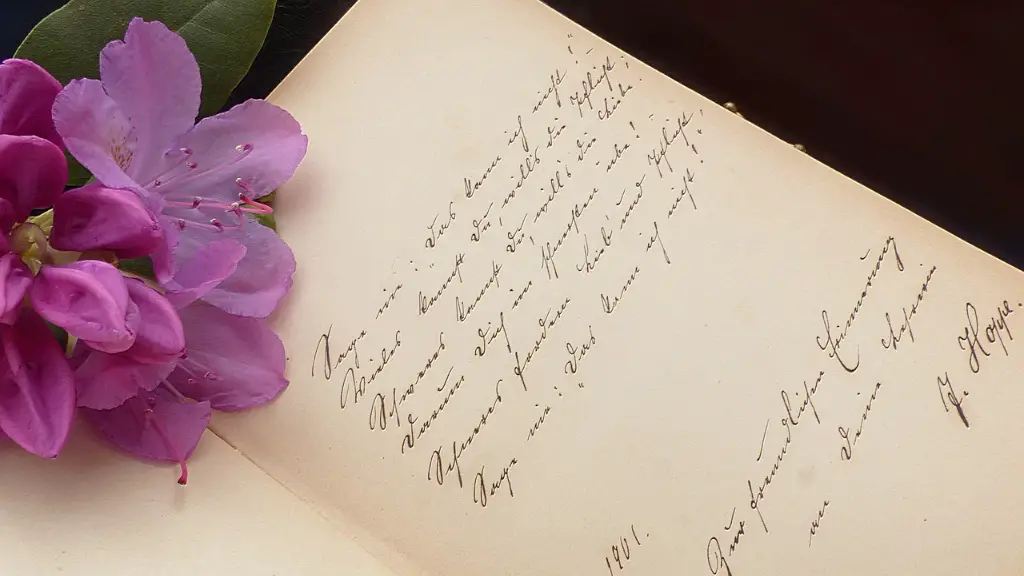 Sage nie: „Das kann ich nicht!“
Vieles kannst Du, will's die Pflicht;
Schweres kannst Du, will's die Liebe.
Darum Dich im Schwersten übe!
Schweres fordern Lieb' und Pflicht!
Sage nie: „Das kann ich nicht!
Zur freundlichen Erinnerung
an Deine
J. Hoppe.
1901.